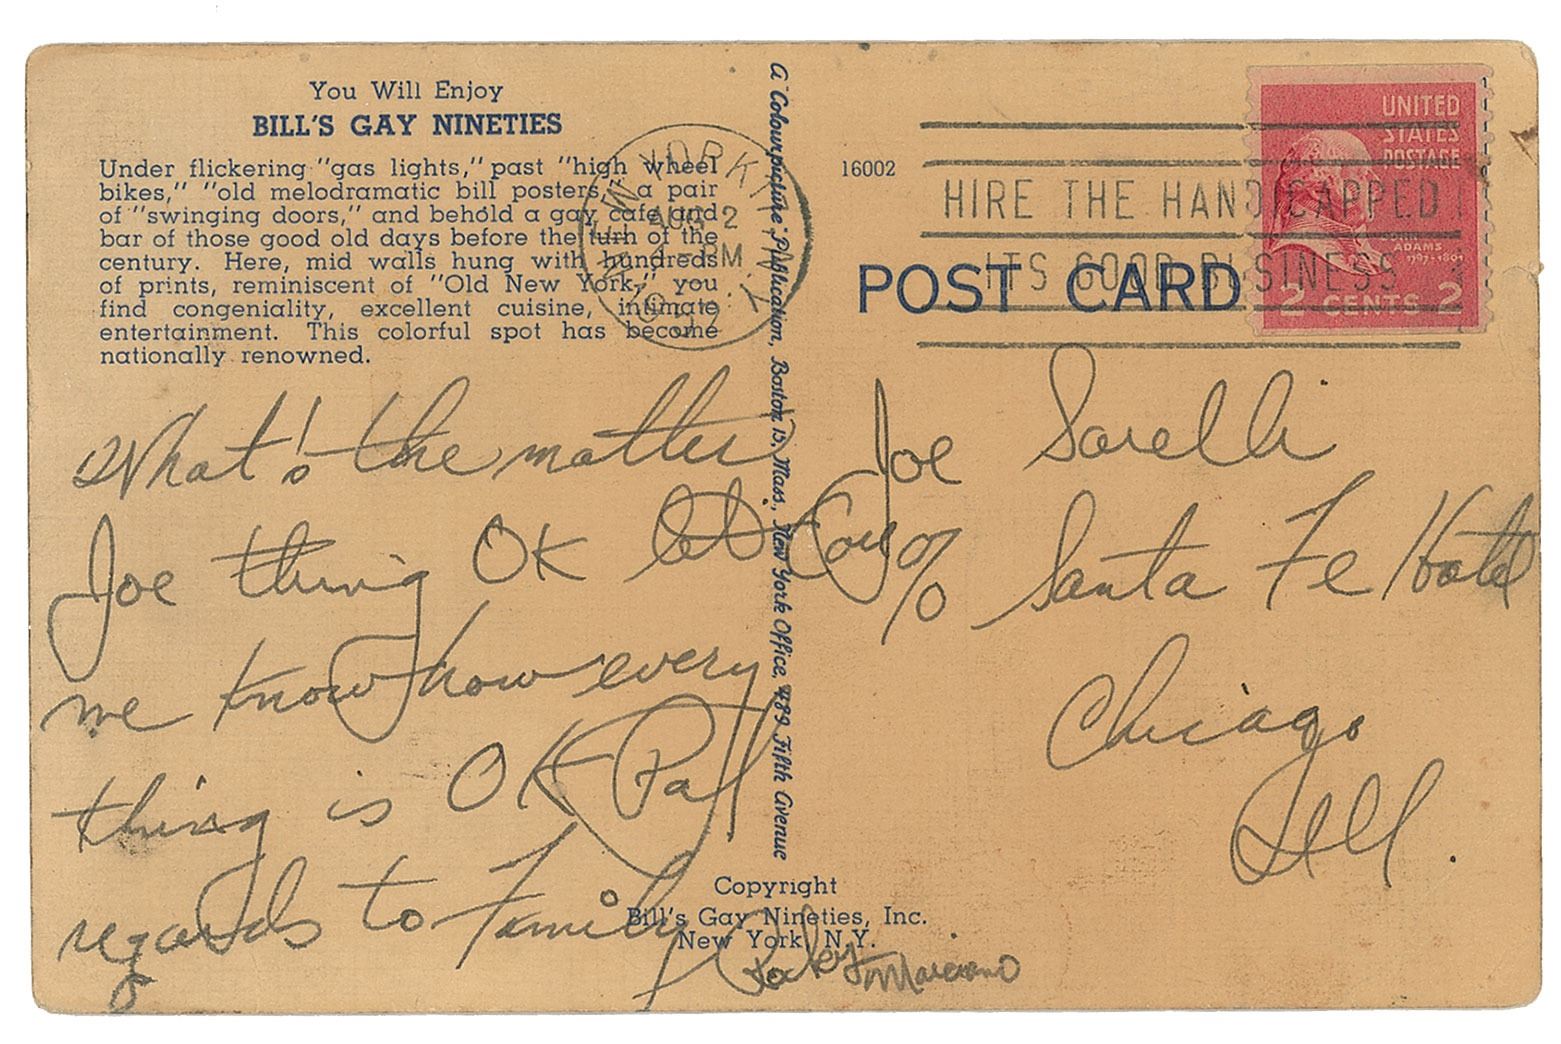 You Will Enjoy
BILL'S GAY NINETIES
Under flickering "gas lights," past "high wheel
bikes," "old melodramatic bill posters," a pair
of "swinging doors," and behold a gay cafe and
bar of those good old days before the turn of the
century. Here, mid walls hung with hundreds
of prints, reminiscent of "Old New York," you
find congeniality, excellent cuisine, intimate
entertainment. This colorful spot has become
nationally renowned.
What's the matter
Joe thing OK let
me know how every
thing is OK Pal
regards to Family
Rocky Marciano
A "Colourpicture" Publication, Boston 15, Mass., New York Office, 489 Fifth Avenue
Copyright
Bill's Gay Nineties, Inc.
New York, N.Y.
16002
POST CARD
NEW YORK, N.Y.
AUG 2
PM
HIRE THE HANDICAPPED
ITS GOOD BUSINESS
UNITED
STATES
POSTAGE
JOHN ADAMS
1797-1801
2 CENTS 2
Joe Sarelli
c/o Santa Fe Hotel
Chicago
Ill.